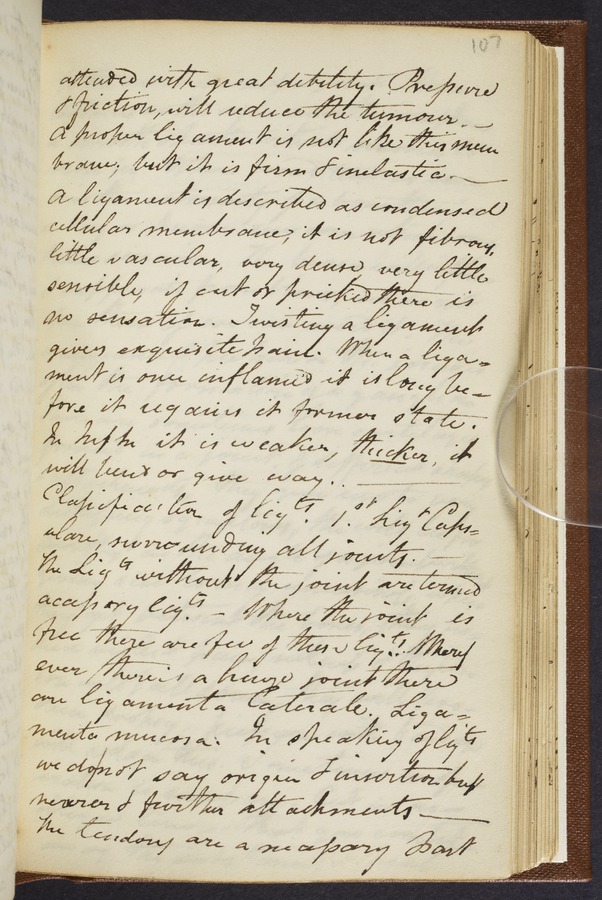 107
attended with great debility. Pressure
& friction, will reduce the tumour. —
A proper ligament is not like this mem
brane; but it is firm & inelastic. —
A ligament is described as condensed
cellular membrane; it is not fibrous,
little vascular, very dense, very little
sensible, if cut or pricked there is
no sensation. Twisting a ligament
gives exquisite pain. When a liga=
ment is once inflamed it is long be=
fore it regains it former state.
In it is weaker, thicker, it
will bend or give way. . —
Classification of Ligts. 1.st Ligt Caps=
ulare, surrounding all joints. —
The Ligts without the joint are termed
accessory ligts. — Where the joint is
free there are few of these ligts. Where
ever there is a hinge joint there
are ligamenta Laterale. Liga=
menta mucosa. In speaking of ligts
we do not say origin & insertion but
nearer & further attachments —
The tendons are a necessary part